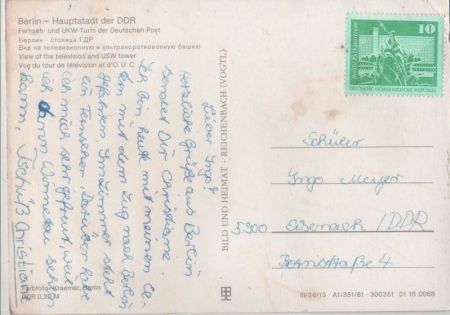 Berlin – Hauptstadt der DDR
Fernseh- und UKW-Turm der Deutschen Post
Берлин - столица ГДР
Вид на телевизионную и ультракоротковолновую башню
View of the television and USW tower
Vue du tour de télévision et d'O. U. C.
Lieber Ingo!
Herzliche Grüße aus Berlin
sendet Dir Christiane.
Ich bin heute mit meinen
mit dem Zug nach Berlin
gefahren. Im Zimmer steht
ein Fernseher.
ich mich sehr gefreut, weil
ich dann Winnetou sehen
kann. Tschüß Christiane
BILD UND HEIMAT · REICHENBACH (VOGTL)
10
DEUTSCHE DEMOKRATISCHE REPUBLIK
Schüler
Ingo Meyer
5900 Eisenach/DDR
Bornstraße 4
Farbfoto: Kraemer, Berlin
DDR 0,20 M
III/26/13 · A1/351/81 · 300351 01 15 0068